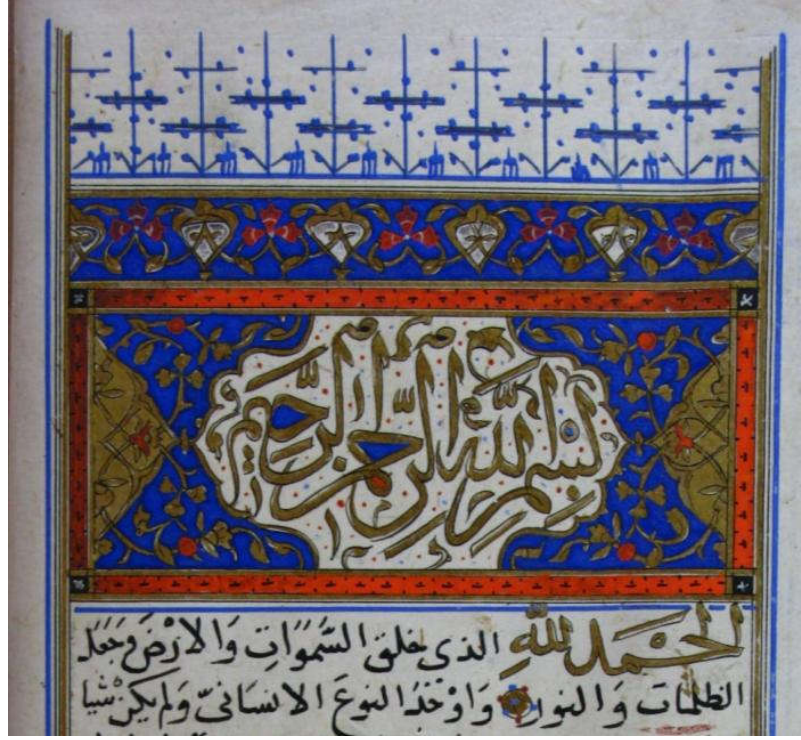 بسم الله الرحمن الرحيم
الحمد لله الذى خلق السموات والارض وجعل
الظلمات والنور واوجد النوع الانسانى ولم يكن شيا